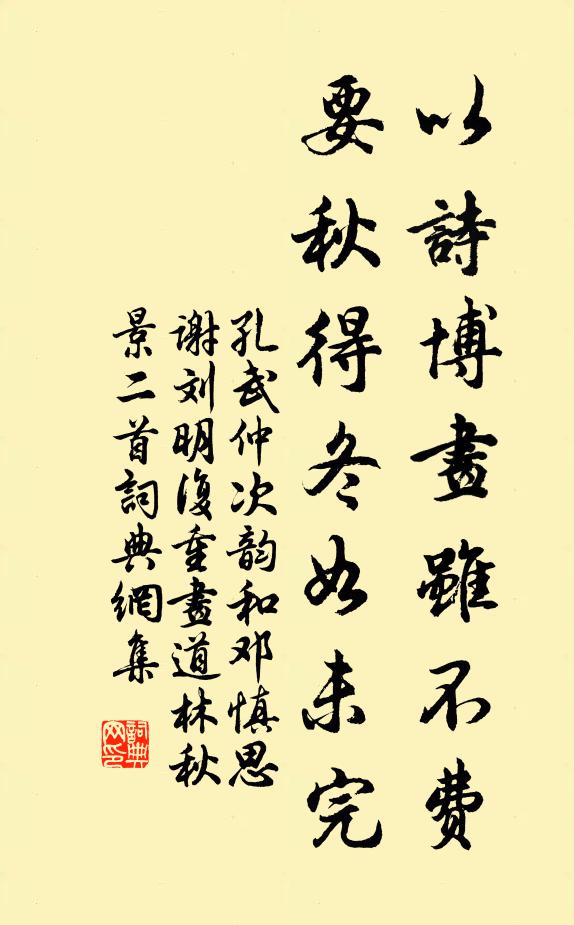 以詩博畫雖不費
要秋得冬如未完
孔武仲次韵和邓慎思
谢刘明復重畫道林秋
景二首詞典網集
詞典
网印